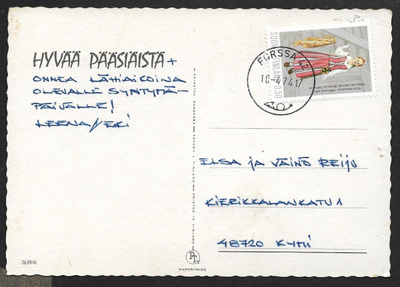 HYVÄÄ PÄÄSIÄISTÄ +
ONNEA LÄHIAIKOINA
OLEVALLE SYNTYMÄ-
PÄIVÄLLE!
LEENA/EKI
FORSSA
10-4.74 17
SUOMI FINLAND
ELSA JA VÄINÖ REIJU
KIERIKKALANKATU 1
48720 KYMI
2639/6
PT
PAPERITAIDE